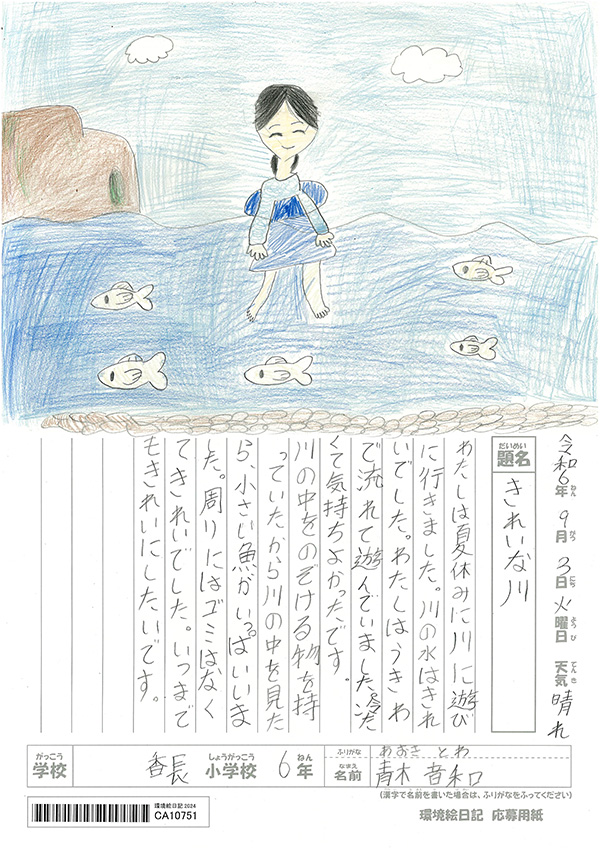 令和6年 9月 3日 火曜日 天気 晴れ
ねん がつ にち ようび てんき
だいめい
題名
きれいな川
わたしは夏休みに川に遊び
に行きました。川の水はきれ
いでした。わたしはうきわ
で流れて遊んでいました。冷た
くて気持ちよかったです。
川の中をのぞける物を持
っていたから川の中を見た
ら、小さい魚がいっぱいいま
した。周りにはゴミはなく
てきれいでした。いつまで
もきれいにしたいです。
がっこう
学校
香長 小学校 6年
しょうがっこう ねん
ふりがな あおき とわ
なまえ
名前 青木 音和
(漢字で名前を書いた場合は、ふりがなをふってください)
環境絵日記 2024
CA10751
環境絵日記 応募用紙